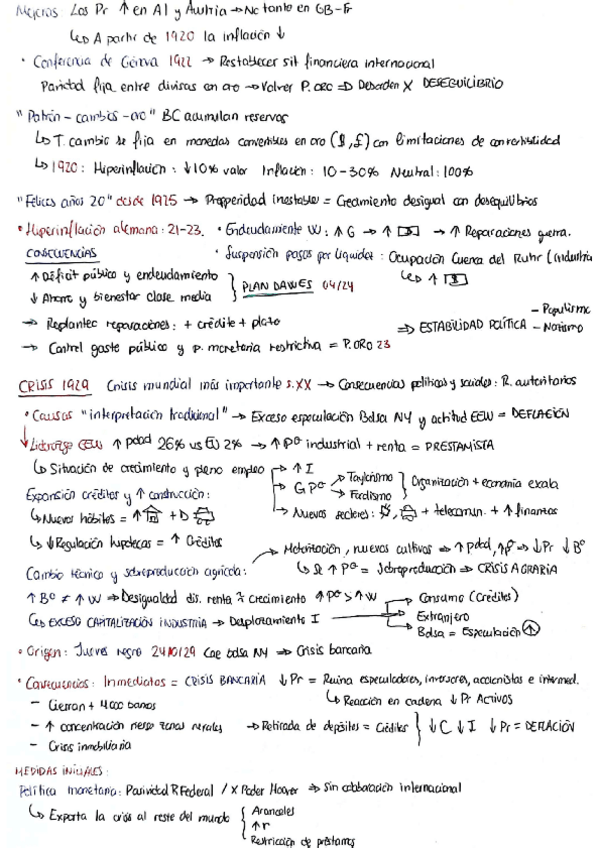 Mejoras: Los Pr ↑ en Al y Austria → No tanto en GB-Fr
↳ A partir de 1920 la inflación ↓
• Conferencia de Génova 1922 → Restablecer sit financiera internacional
Paridad fija entre divisas con oro → Volver P. ORO ⇒ Deberían X DESEQUILIBRIO
"Patrón - cambios - oro" BC acumulan reservas
↳ T. cambio se fija en monedas convertibles en oro ($, £) con limitaciones de convertibilidad
↳ 1920: Hiperinflación: ↓10% valor Inflación: 10-30% Neutral: 100%
"Felices años 20" desde 1925 → Prosperidad inestable = Crecimiento desigual con desequilibrios
• Hiperinflación alemana: 21-23. • Endeudamiente W: ↑ G → ↑ → ↑ Reparaciones guerra.
CONSECUENCIAS • Suspensión pagos por liquidez: Ocupación Cuenca del Ruhr (industria
↑ Déficit público y endeudamiento ↳ ↑
↓ Ahorro y bienestar clase media } PLAN DAWES 04/24
→ Replantec reparaciones: + crédito + plazo
→ Control gasto público y p. monetaria restrictiva = P. ORO 23 ⇒ ESTABILIDAD POLÍTICA - Populismo
- Nazismo
CRISIS 1929 Crisis mundial más importante s. XX → Consecuencias políticas y sociales: R. autoritarios
• Causas "interpretación tradicional" → Exceso especulación Bolsa NY y actitud EEUU = DEFLACIÓN
Liderazgo EEUU ↑ pdad 26% vs EU 2% → ↑ Pº industrial + renta = PRESTAMISTA
↳ Situación de crecimiento y pleno empleo → ↑ I
→ G Pº → Taylorismo
→ Fordismo } Organización + economía escala
Expansión créditos y ↑ construcción: → Nuevos sectores: + telecomun. + ↑ finanzas
↳ Nuevos hábitos = ↑ + D
↳ ↓ Regulación hipotecas = ↑ Créditos
Cambio técnico y sobreproducción agrícola: → Motorización, nuevos cultivos → ↑ pdad, ↑ Pº → ↓ Pr ↓ Bº
↳ ↑ Pº = Sobreproducción → CRISIS AGRARIA
↑ Bº ≠ ↑ W → Desigualdad dis. renta crecimiento ↑ Pº > ↑ W → Consumo (Créditos)
↳ EXCESO CAPITALIZACIÓN INDUSTRIA → Desplazamiento I → Extranjero
→ Bolsa = Especulación ↑
• Origen: Jueves negro 24/10/29 Cae bolsa NY → Crisis bancaria
• Consecuencias: Inmediatas = CRISIS BANCARIA ↓ Pr = Ruina especuladores, inversores, accionistas e intermed.
↳ Reacción en cadena ↓ Pr Activos
- Cierran + 4000 bancos
- ↑ concentración riesgo zonas rurales → Retirada de depósitos = Créditos } ↓ C ↓ I ↓ Pr = DEFLACIÓN
- Crisis inmobiliaria
MEDIDAS INICIALES:
Política monetaria: Pasividad R Federal / X Poder Hoover → Sin colaboración internacional
↳ Exporta la crisis al resto del mundo { Aranceles
↑ r
Restricción de préstamos